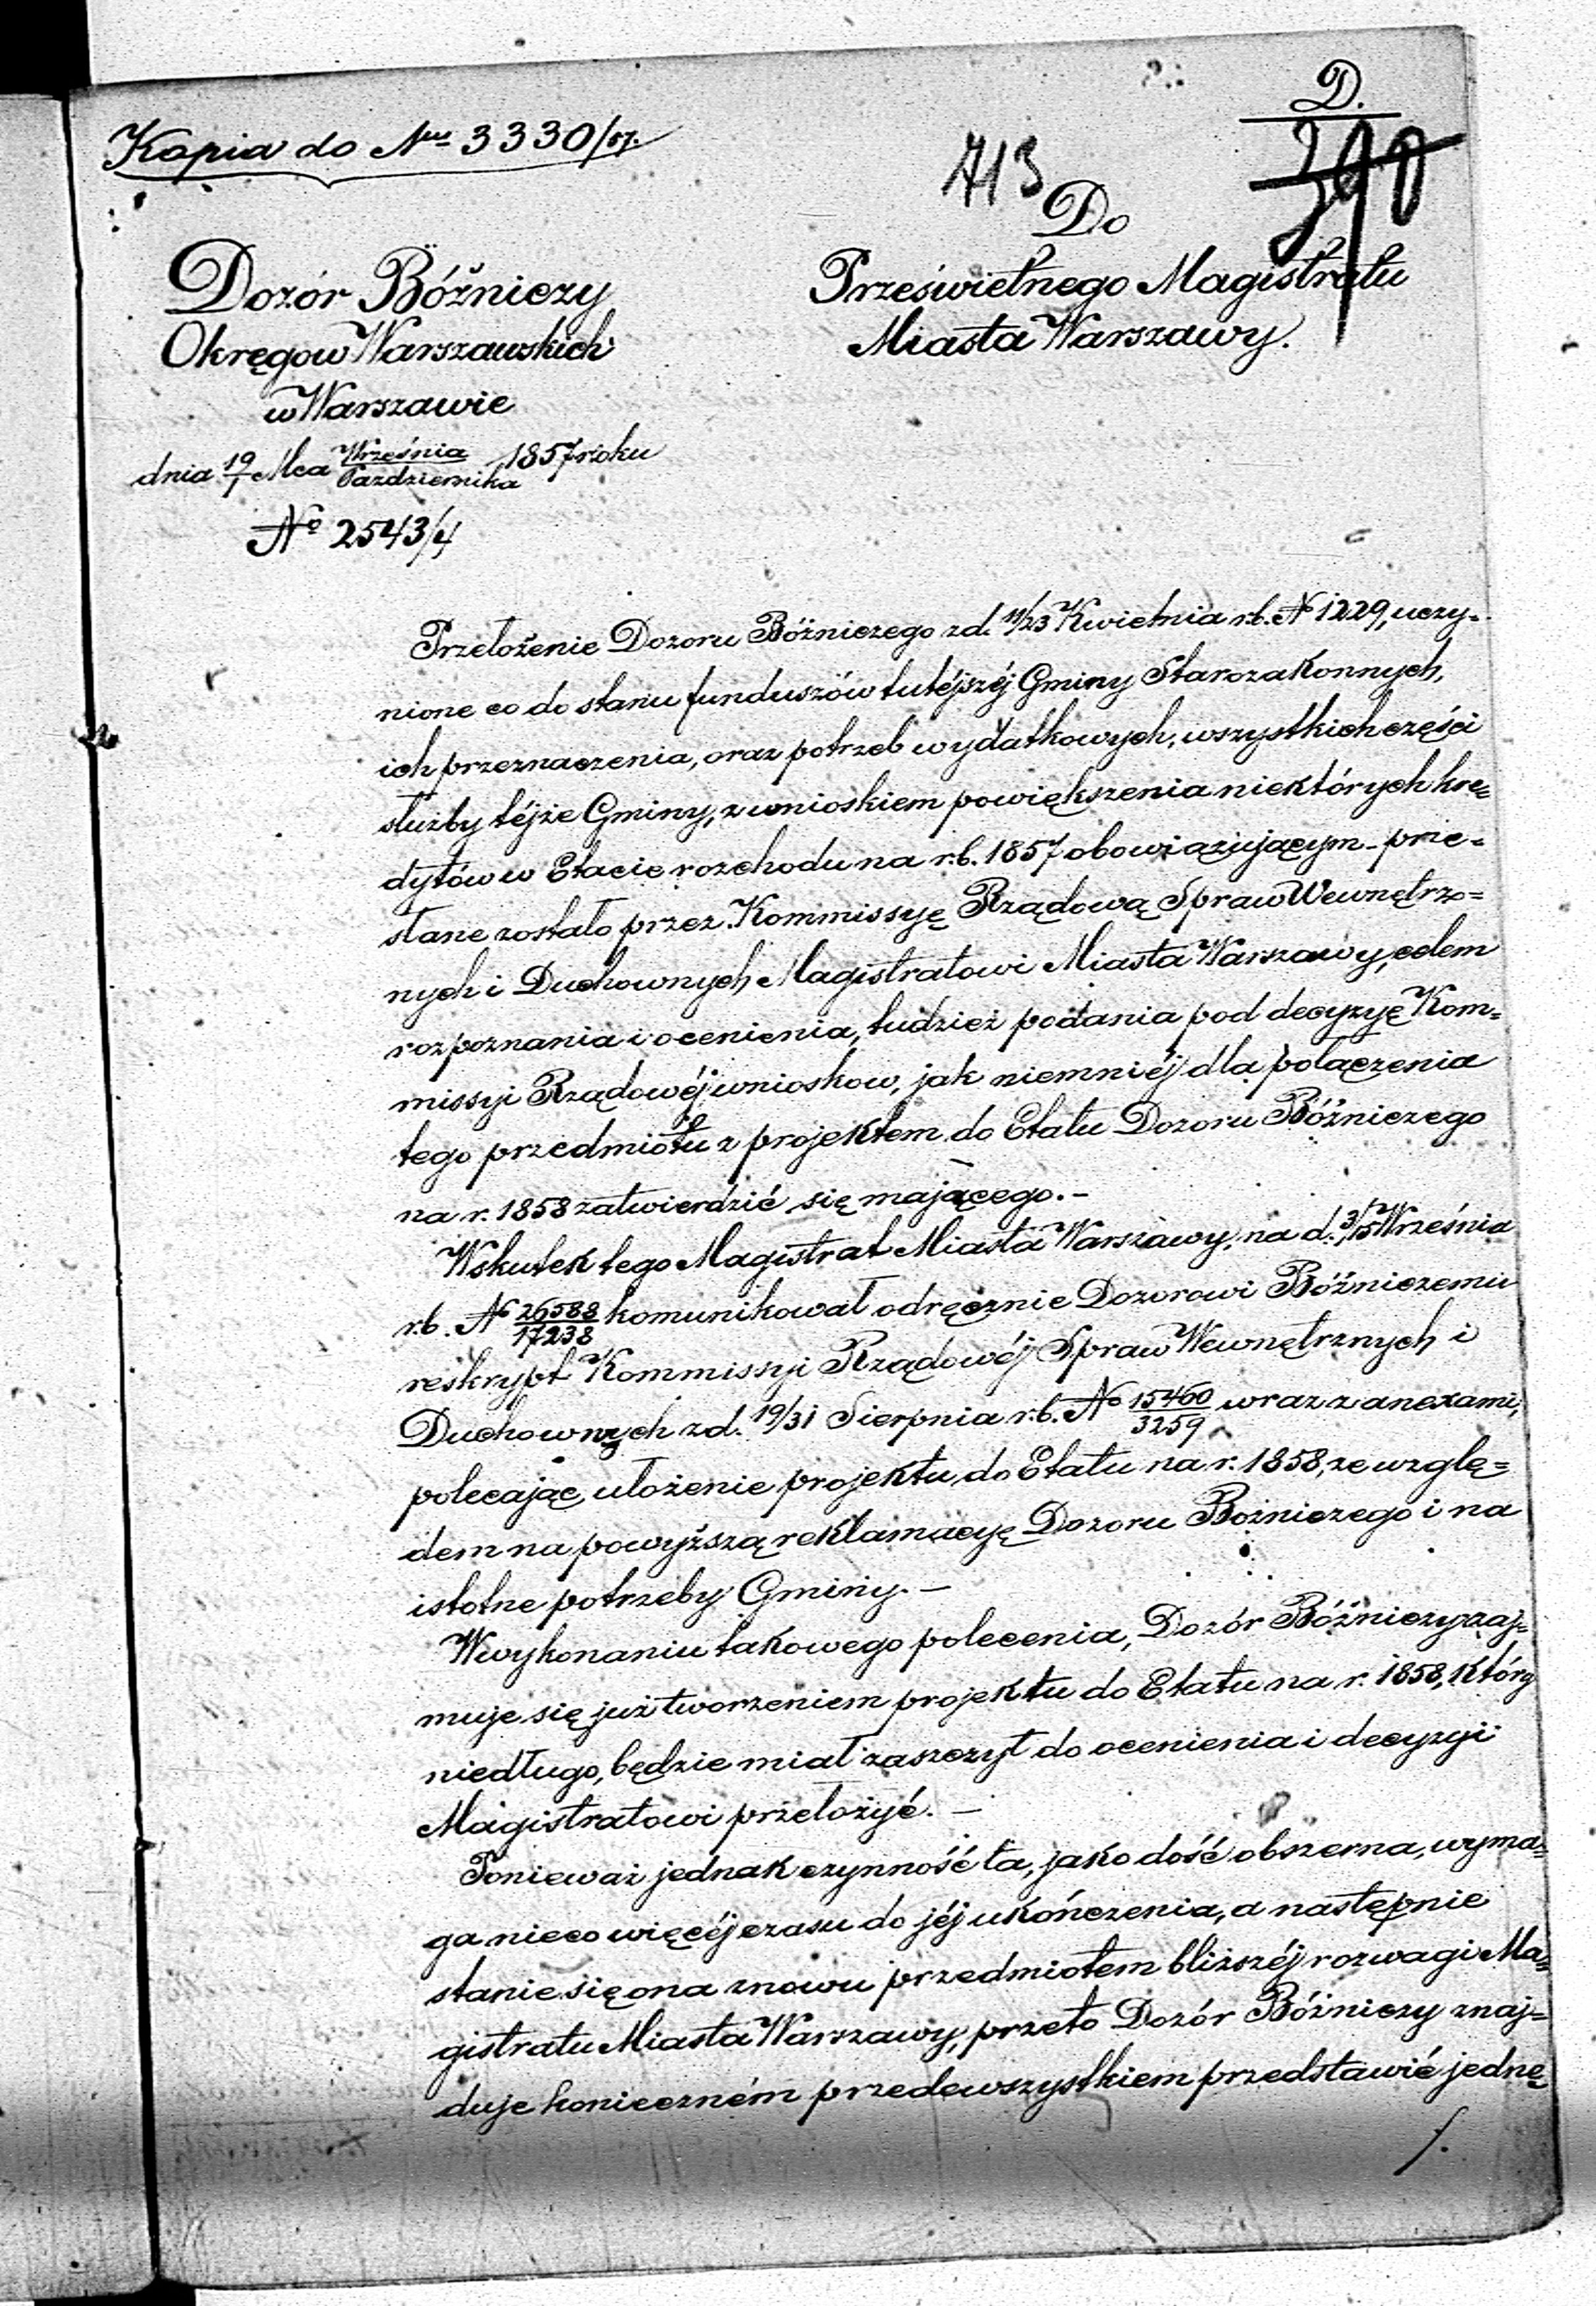 D.
Kopia do Nru 3330/57.
713
390
Do
Prześwietnego Magistratu
Miasta Warszawy.
Dozór Bóźniczy
Okręgow Warszawskich
w Warszawie
dnia 19/1 Mca Września/Pazdziernika 1857 roku
No 2543/4
Przełożenie Dozoru Bóźniczego z d. 11/23 Kwietnia r.b. N 1229, uczy-
nione co do stanu funduszów tutéjszéj Gminy Starozakonnych,
ich przeznaczenia, oraz potrzeb wydatkowych, wszystkich części
służby téjże Gminy, z wnioskiem powiększenia niektórych kre-
dytów w Etacie rozchodu na r.b. 1857 obowiązującym - prze-
słane zostało przez Kommissyę Rządową Spraw Wewnętrz-
nych i Duchownych Magistratowi Miasta Warszawy, celem
rozpoznania i ocenienia, tudzież podania pod decyzyę Kom-
missyi Rządowéj wnioskow, jak niemniéj dla połączenia
tego przedmiotu z projektem do Etatu Dozoru Bóźniczego
na r. 1858 zatwierdzić się mającego. -
Wskutek tego Magistrat Miasta Warszawy, na d. 3/15 Września
r.b. No 26588/17238 komunikował odręcznie Dozorowi Bóźniczemu
reskrypt Kommissyi Rządowéj Spraw Wewnętrznych i
Duchownych z d. 19/31 Sierpnia r.b. No 15460/3259 wraz z anexami,
polecając ułożenie projektu do Etatu na r. 1858, ze wzglę-
dem na powyższą reklamacyę Dozoru Bożniczego i na
istotne potrzeby Gminy. -
W wykonaniu takowego polecenia, Dozór Bóźniczy zaj-
muje się już tworzeniem projektu do Etatu na r. 1858, który
niedługo, będzie miał zaszczyt do ocenienia i decyzyi
Magistratowi przełożyć. -
Ponieważ jednak czynność ta, jako dość obszerna, wyma-
ga nieco więcéj czasu do jéj ukończenia, a następnie
stanie się ona znowu przedmiotem bliższéj rozwagi Ma-
gistratu Miasta Warszawy, przeto Dozór Bóźniczy znaj-
duje konieczném przedewszystkiem przedstawić jednę
/.